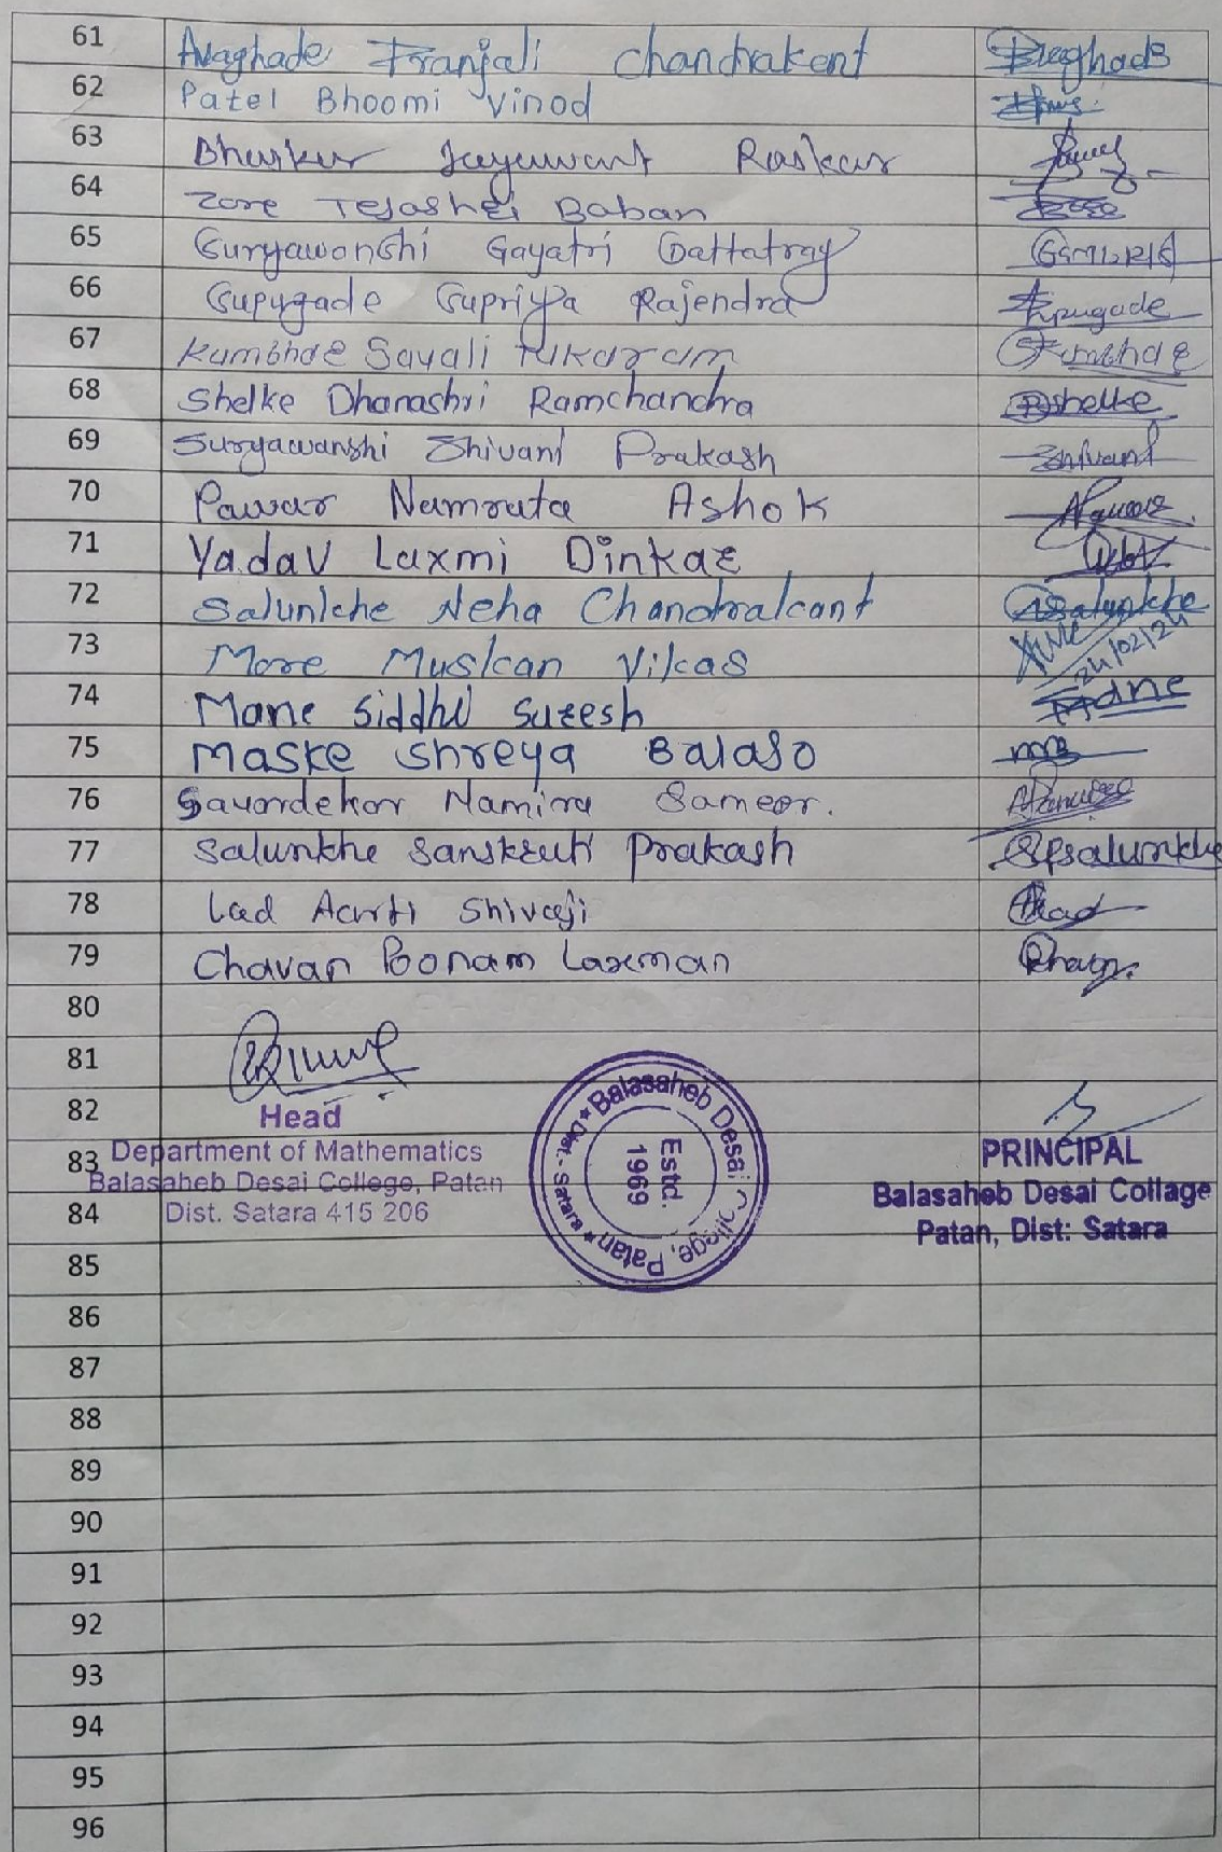 61 Avaghade Pranjali Chandrakant
62 Patel Bhoomi Vinod
63 Bhaskar Jayawant Raskar
64 Zore Tejashri Baban
65 Suryawanshi Gayatri Dattatray
66 Supugade Supriya Rajendra Supugade
67 Kumbhar Sayali Tukaram Kumbhar
68 Shelke Dhanashri Ramchandra Dshelke
69 Suryawanshi Shivani Prakash Shivani
70 Pawar Namrata Ashok
71 Yadav Laxmi Dinkar
72 Salunkhe Neha Chandrakant Nsalunkhe
73 More Muskan Vikas 24/02/24
74 Mane Siddhi Suresh Mane
75 Maske Shreya Balaso
76 Savardekar Namira Sameer.
77 Salunkhe Sanskruti Prakash SPSalunkhe
78 Lad Aarti Shivaji
79 Chavan Poonam Laxman
80
81
82 Head
83 Department of Mathematics PRINCIPAL
Balasaheb Desai College, Patan Balasaheb Desai Collage
84 Dist. Satara 415 206 Patan, Dist: Satara
Balasaheb Desai College, Patan * Dist.- Satara *
Estd.
1969
85
86
87
88
89
90
91
92
93
94
95
96